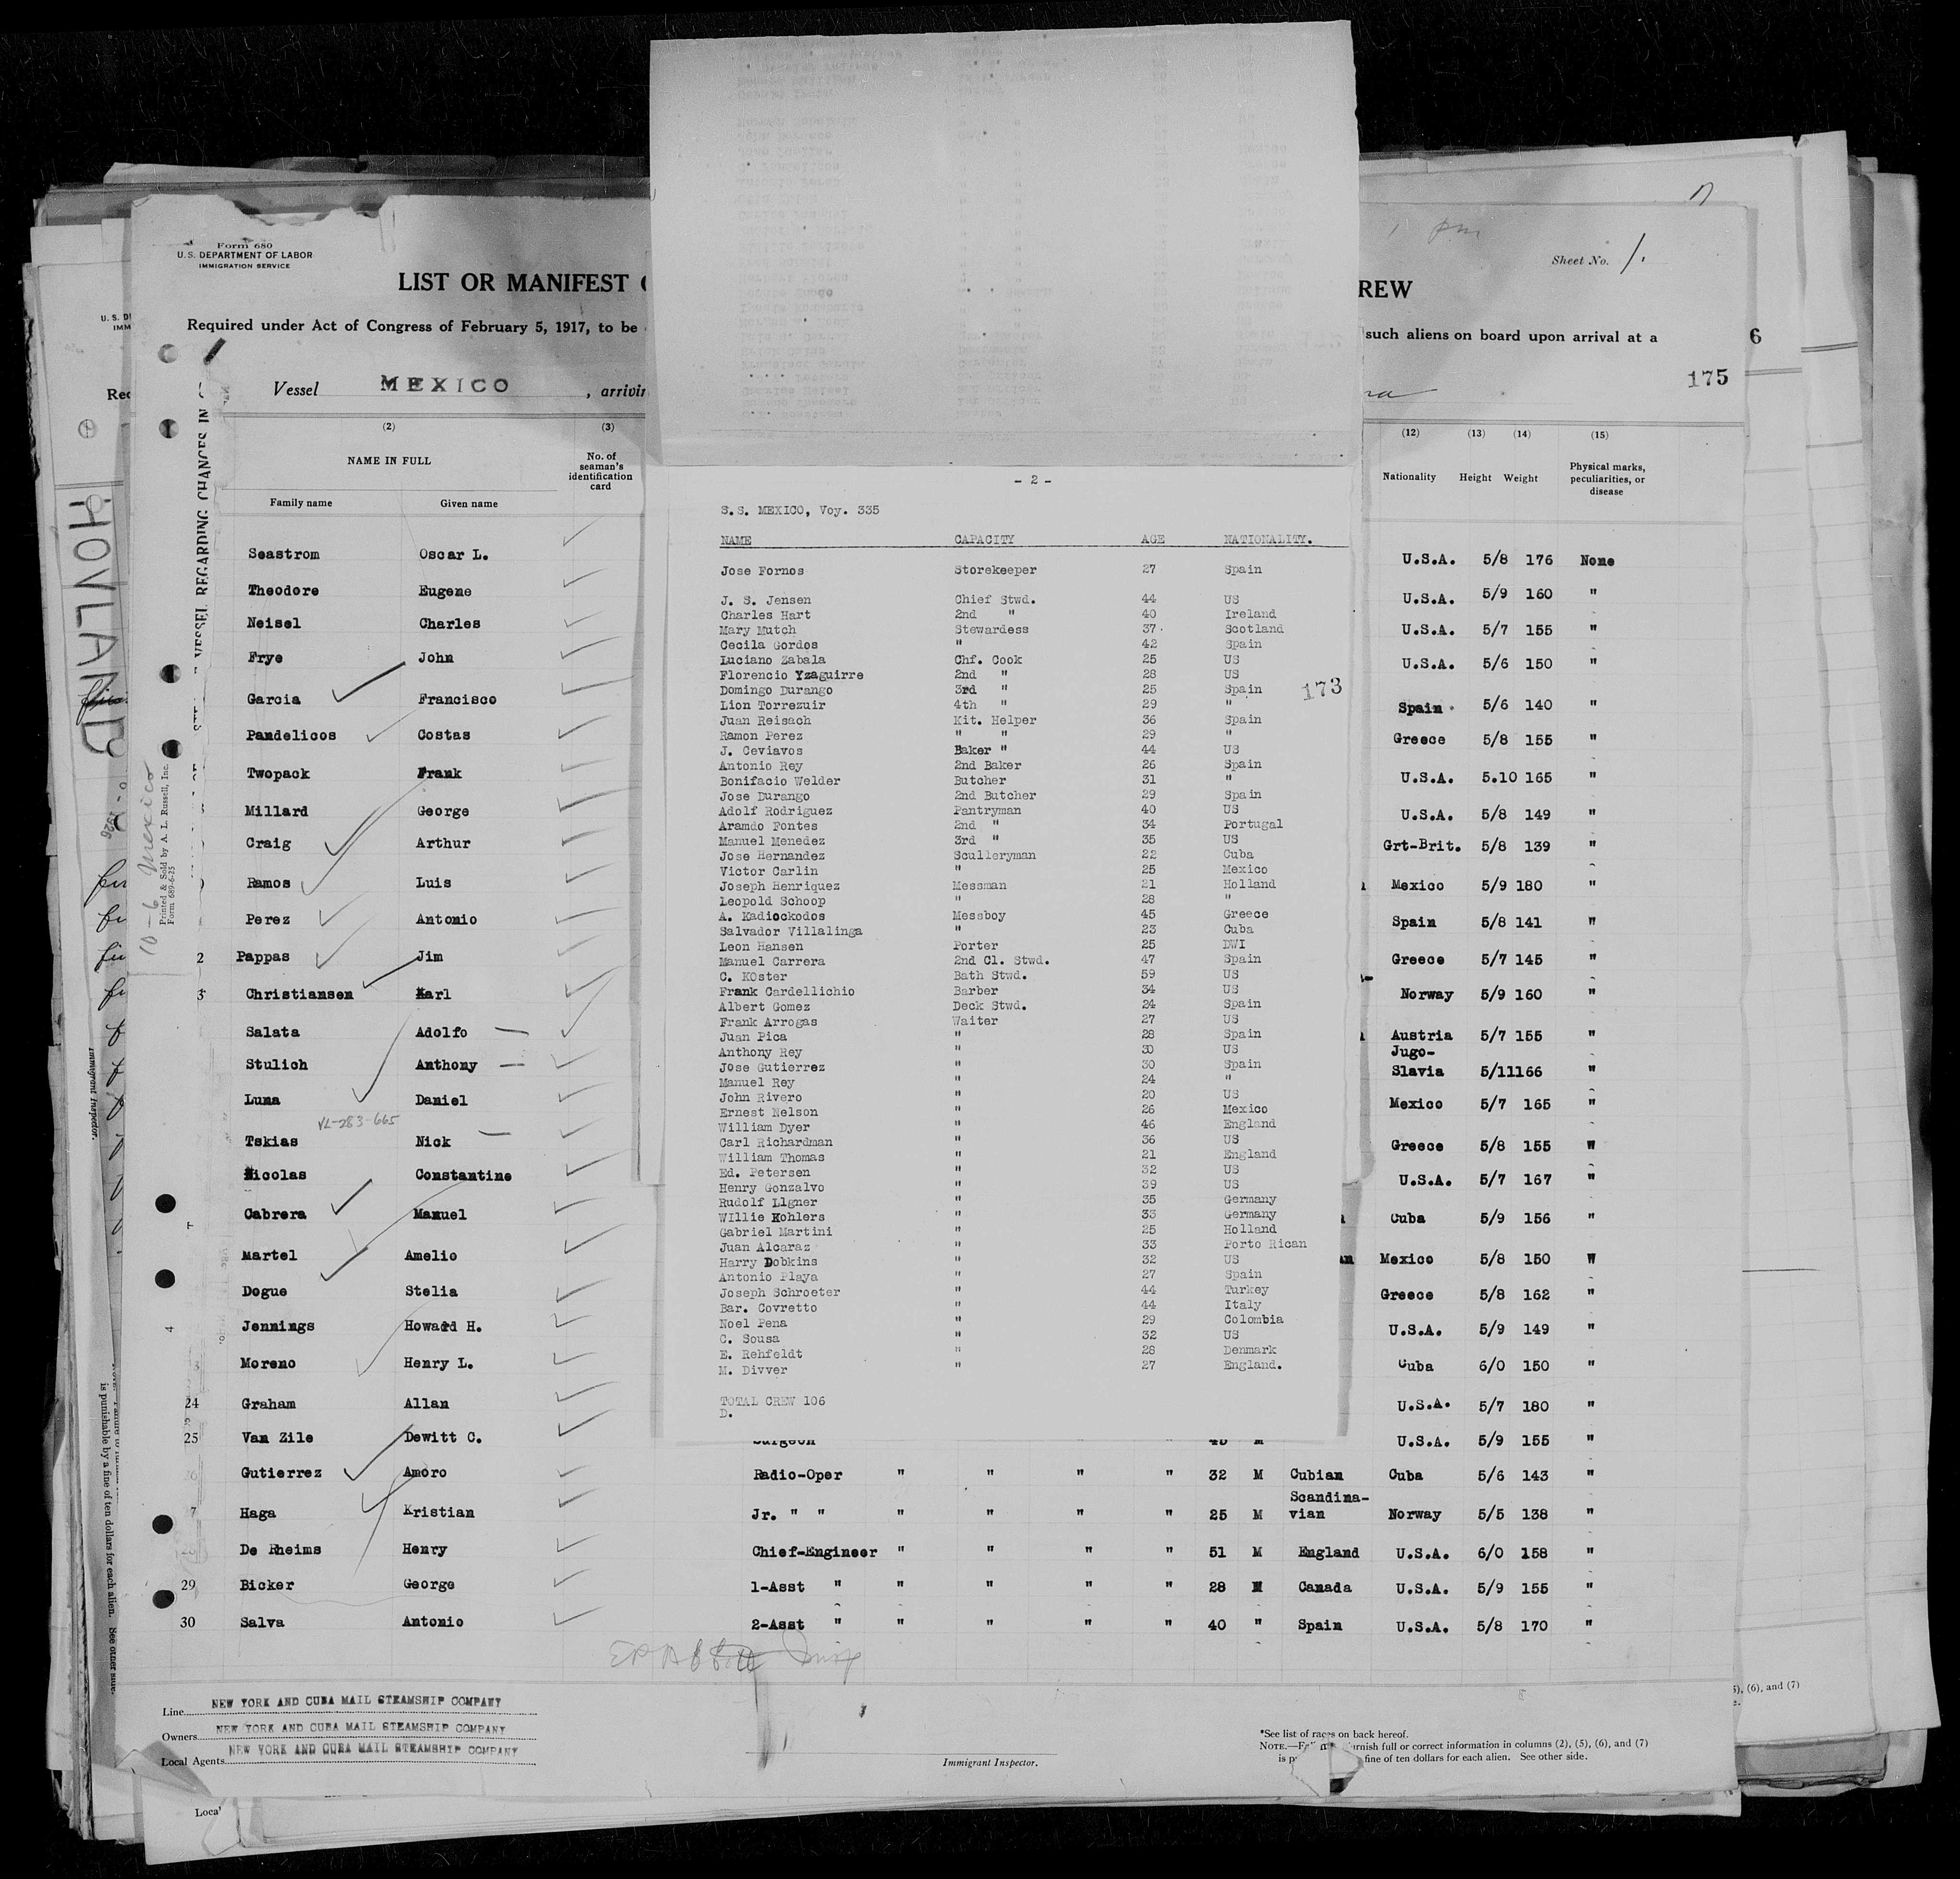 Form 680
U.S. DEPARTMENT OF LABOR
IMMIGRATION SERVICE
Sheet No. 1.
LIST OR MANIFEST
REW
Required under Act of Congress of February 5, 1917, to be
such aliens on board upon arrival at a
6
175
Vessel MEXICO, arrivin
(2) (3)
NAME IN FULL
No. of seaman's identification card
Family name Given name
(12) (13) (14) (15)
Nationality Height Weight Physical marks, peculiarities, or disease
Seastrom Oscar L. U.S.A. 5/8 176 None
Theodore Eugene U.S.A. 5/9 160 "
Neisel Charles U.S.A. 5/7 155 "
Frye John U.S.A. 5/6 150 "
Garcia Francisco Spain 5/6 140 "
Pandelicos Costas Greece 5/8 155 "
Twopack Frank U.S.A. 5.10 165 "
Millard George U.S.A. 5/8 149 "
Craig Arthur Grt-Brit. 5/8 139 "
Ramos Luis Mexico 5/9 180 "
Perez Antonio Spain 5/8 141 "
2 Pappas Jim Greece 5/7 145 "
3 Christiansen Karl Norway 5/9 160 "
Salata Adolfo Austria 5/7 155 "
Stulich Anthony Jugo-Slavia 5/11 166 "
Luna Daniel Mexico 5/7 165 "
VL-283-665
Tskias Nick Greece 5/8 155 "
Nicolas Constantine U.S.A. 5/7 167 "
Cabrera Manuel Cuba 5/9 156 "
Martel Amelio Mexico 5/8 150 "
Dogue Stelia Greece 5/8 162 "
Jennings Howard H. U.S.A. 5/9 149 "
Moreno Henry L. Cuba 6/0 150 "
24 Graham Allan U.S.A. 5/7 180 "
25 Van Zile Dewitt C. Surgeon 45 M U.S.A. 5/9 155 "
Gutierrez Amoro Radio-Oper " " " " 32 M Cubian Cuba 5/6 143 "
7 Haga Kristian Jr. " " " " " " 25 M Scandina-vian Norway 5/5 138 "
De Rheims Henry Chief-Engineer " " " " 51 M England U.S.A. 6/0 158 "
29 Bicker George 1-Asst " " " " " 28 M Canada U.S.A. 5/9 155 "
30 Salva Antonio 2-Asst " " " " " 40 " Spain U.S.A. 5/8 170 "
- 2 -
S.S. MEXICO, Voy. 335
NAME CAPACITY AGE NATIONALITY.
Jose Fornos Storekeeper 27 Spain
J. S. Jensen Chief Stwd. 44 US
Charles Hart 2nd " 40 Ireland
Mary Mutch Stewardess 37 Scotland
Cecila Gordos " 42 Spain
Luciano Zabala Chf. Cook 25 US
Florencio Yzaguirre 2nd " 28 US
Domingo Durango 3rd " 25 Spain
173
Lion Torrezuir 4th " 29 "
Juan Reisach Kit. Helper 36 Spain
Ramon Perez " " 29 "
J. Ceviavos Baker " 44 US
Antonio Rey 2nd Baker 26 Spain
Bonifacio Welder Butcher 31 "
Jose Durango 2nd Butcher 29 Spain
Adolf Rodriguez Pantryman 40 US
Aramdo Fontes 2nd " 34 Portugal
Manuel Menedez 3rd " 35 US
Jose Hernandez Sculleryman 22 Cuba
Victor Carlin " 25 Mexico
Joseph Henriquez Messman 21 Holland
Leopold Schoop " 28 "
A. Kadiockodos Messboy 45 Greece
Salvador Villalinga " 23 Cuba
Leon Hansen Porter 25 DWI
Manuel Carrera 2nd Cl. Stwd. 47 Spain
C. KOster Bath Stwd. 59 US
Frank Cardellichio Barber 34 US
Albert Gomez Deck Stwd. 24 Spain
Frank Arrogas Waiter 27 US
Juan Pica " 28 Spain
Anthony Rey " 30 US
Jose Gutierrez " 30 Spain
Manuel Rey " 24 "
John Rivero " 20 US
Ernest Nelson " 26 Mexico
William Dyer " 46 England
Carl Richardman " 36 US
William Thomas " 21 England
Ed. Petersen " 32 US
Henry Gonzalvo " 39 US
Rudolf Llgner " 35 Germany
WIllie Kohlers " 33 Germany
Gabriel Martini " 25 Holland
Juan Alcaraz " 33 Porto Rican
Harry Dobkins " 32 US
Antonio Playa " 27 Spain
Joseph Schroeter " 44 Turkey
Bar. Covretto " 44 Italy
Noel Pena " 29 Colombia
C. Sousa " 32 US
E. Rehfeldt " 28 Denmark
M. Divver " 27 England.
TOTAL CREW 106
D.
Line NEW YORK AND CUBA MAIL STEAMSHIP COMPANY
Owners NEW YORK AND CUBA MAIL STEAMSHIP COMPANY
Local Agents NEW YORK AND CUBA MAIL STEAMSHIP COMPANY
Immigrant Inspector.
*See list of races on back hereof.
NOTE.— furnish full or correct information in columns (2), (5), (6), and (7)
is fine of ten dollars for each alien. See other side.
(6), and (7)
HOVLAND
VESSEL REGARDING CHANGES IN
10-6 Mexico
Printed & Sold by A. L. Russell, Inc.
Form 689-6-25
Immigrant Inspector.
is punishable by a fine of ten dollars for each alien. See other side.